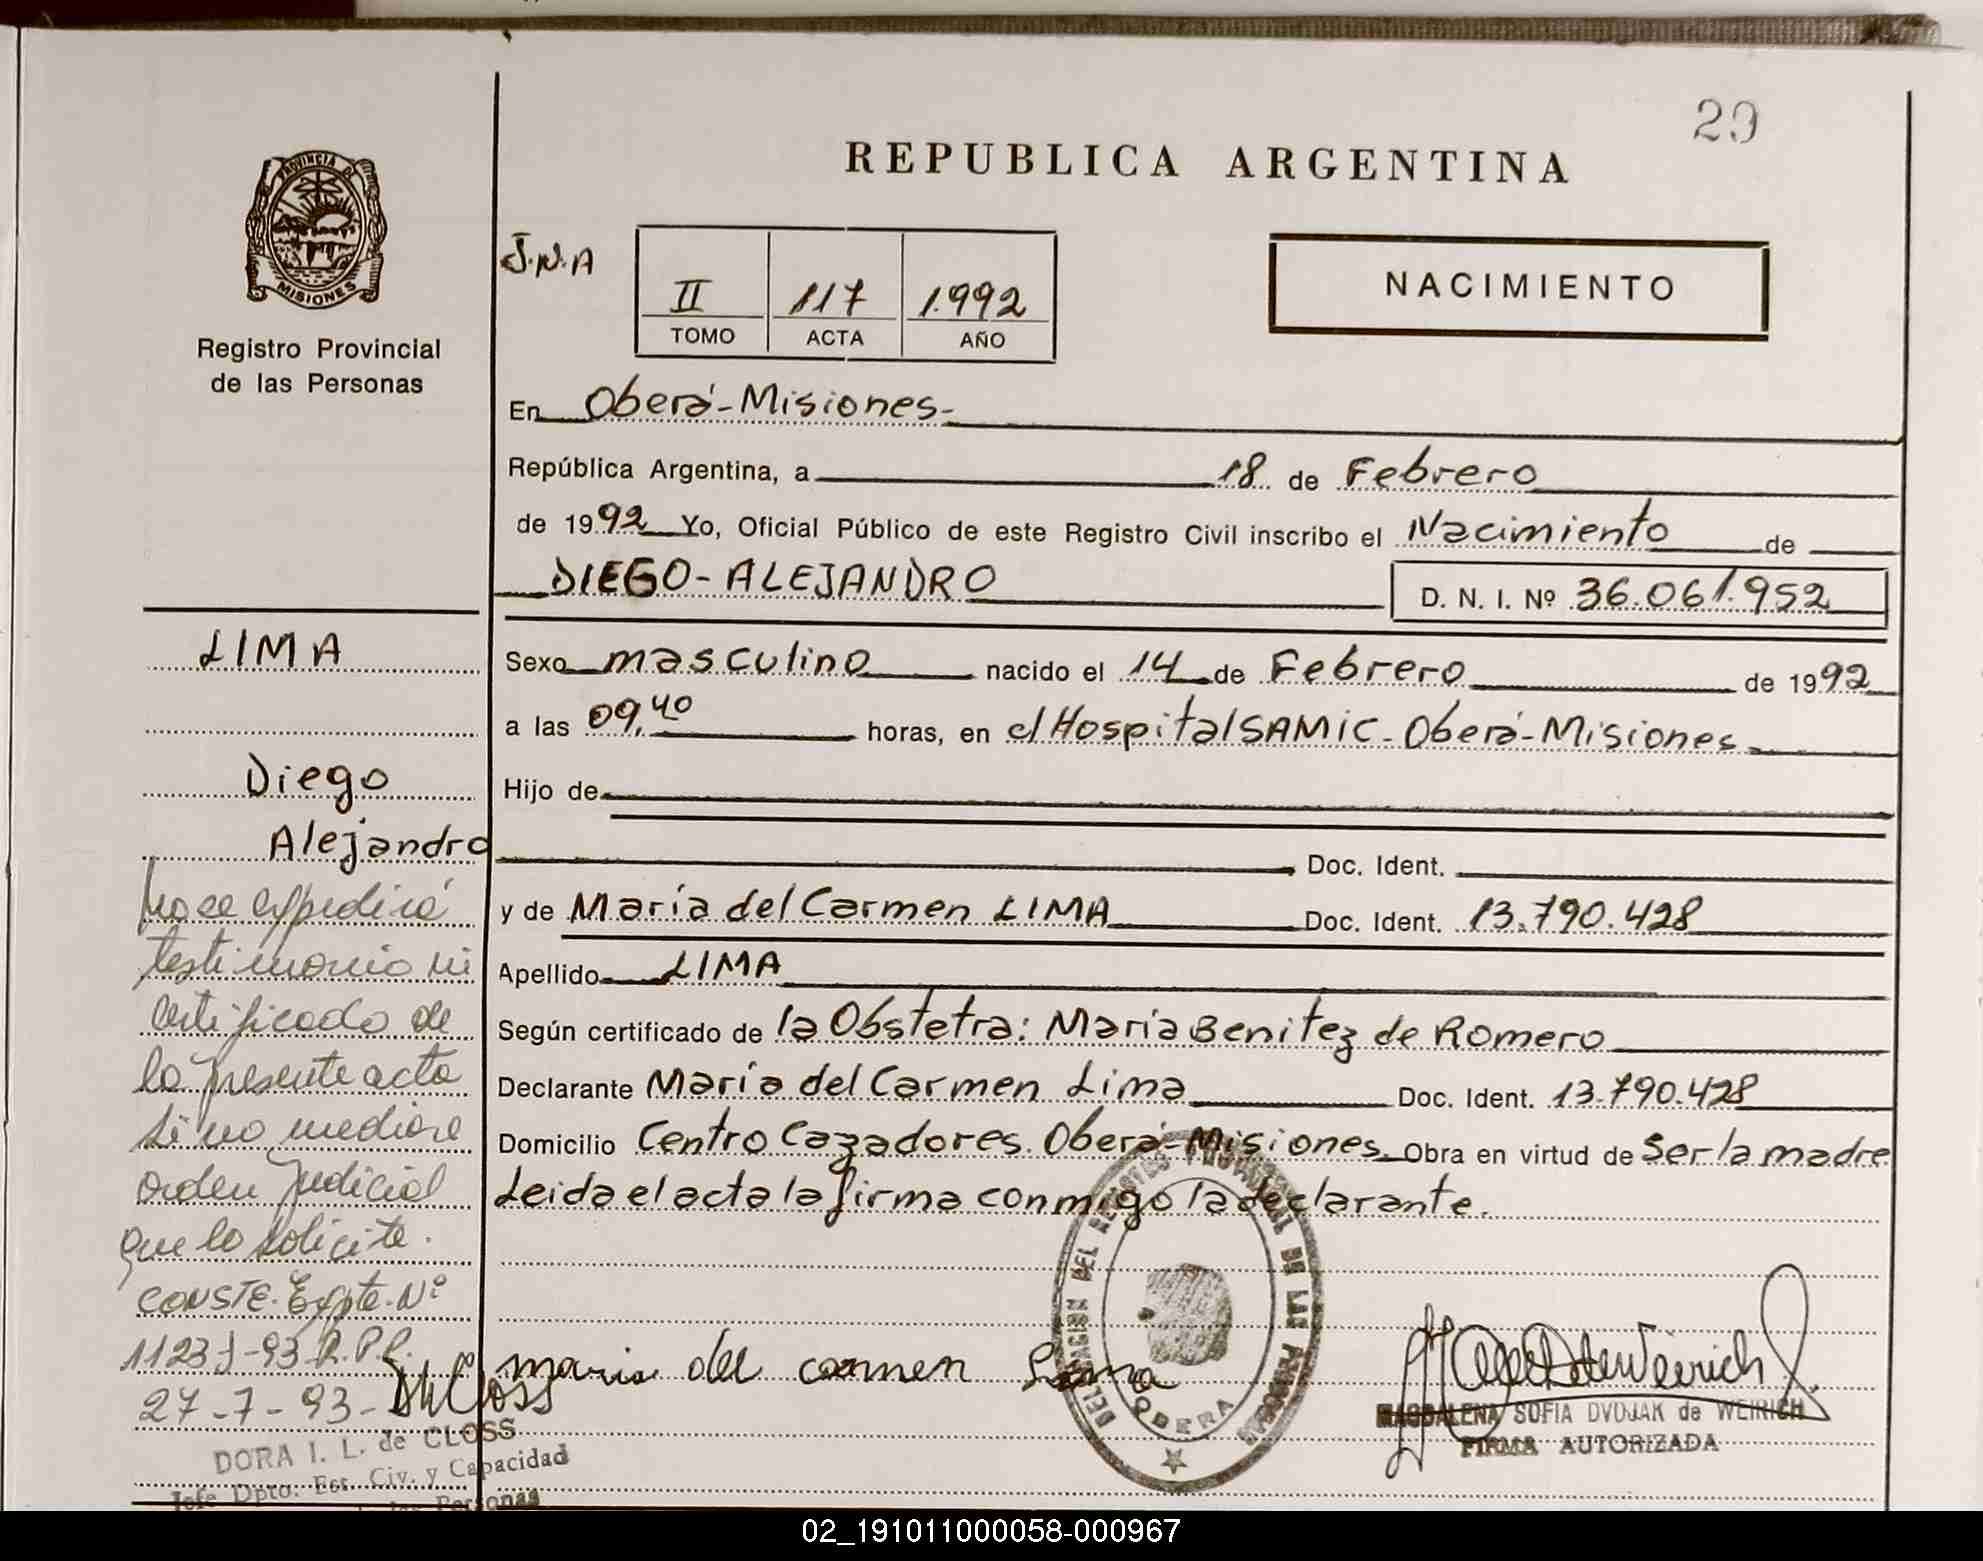 29
REPUBLICA ARGENTINA
PROVINCIA DE
MISIONES
Registro Provincial
de las Personas
J.N.A
II 117 1.992
TOMO ACTA AÑO
NACIMIENTO
En Oberá-Misiones-
República Argentina, a 18 de Febrero
de 1992 Yo, Oficial Público de este Registro Civil inscribo el Nacimiento de
DIEGO-ALEJANDRO D. N. I. Nº 36.061.952
Sexo masculino nacido el 14 de Febrero de 1992
a las 09,40 horas, en el Hospital SAMIC-Oberá-Misiones
Hijo de
Doc. Ident.
y de María del Carmen LIMA Doc. Ident. 13.790.428
Apellido LIMA
Según certificado de la Obstetra: María Benitez de Romero
Declarante María del Carmen Lima Doc. Ident. 13.790.428
Domicilio Centro Cazadores. Oberá-Misiones. Obra en virtud de Ser la madre
Leida el acta la firma conmigo la declarante.
maria del carmen Lima
DELEGACION DEL REGISTRO PROVINCIAL DE LAS PERSONAS
OBERA
MAGDALENA SOFIA DVOJAK de WEIRICH
FIRMA AUTORIZADA
LIMA
Diego
Alejandro
No se expedirá
testimonio ni
certificado de
la presente acta
si no mediare
orden judicial
que lo solicite.
CONSTE. Expte. Nº
1123 J-93 R.P.P.
27-7-93-
DORA I. L. de CLOSS
Jefe Dpto. Est. Civ. y Capacidad
Personas
02_191011000058-000967